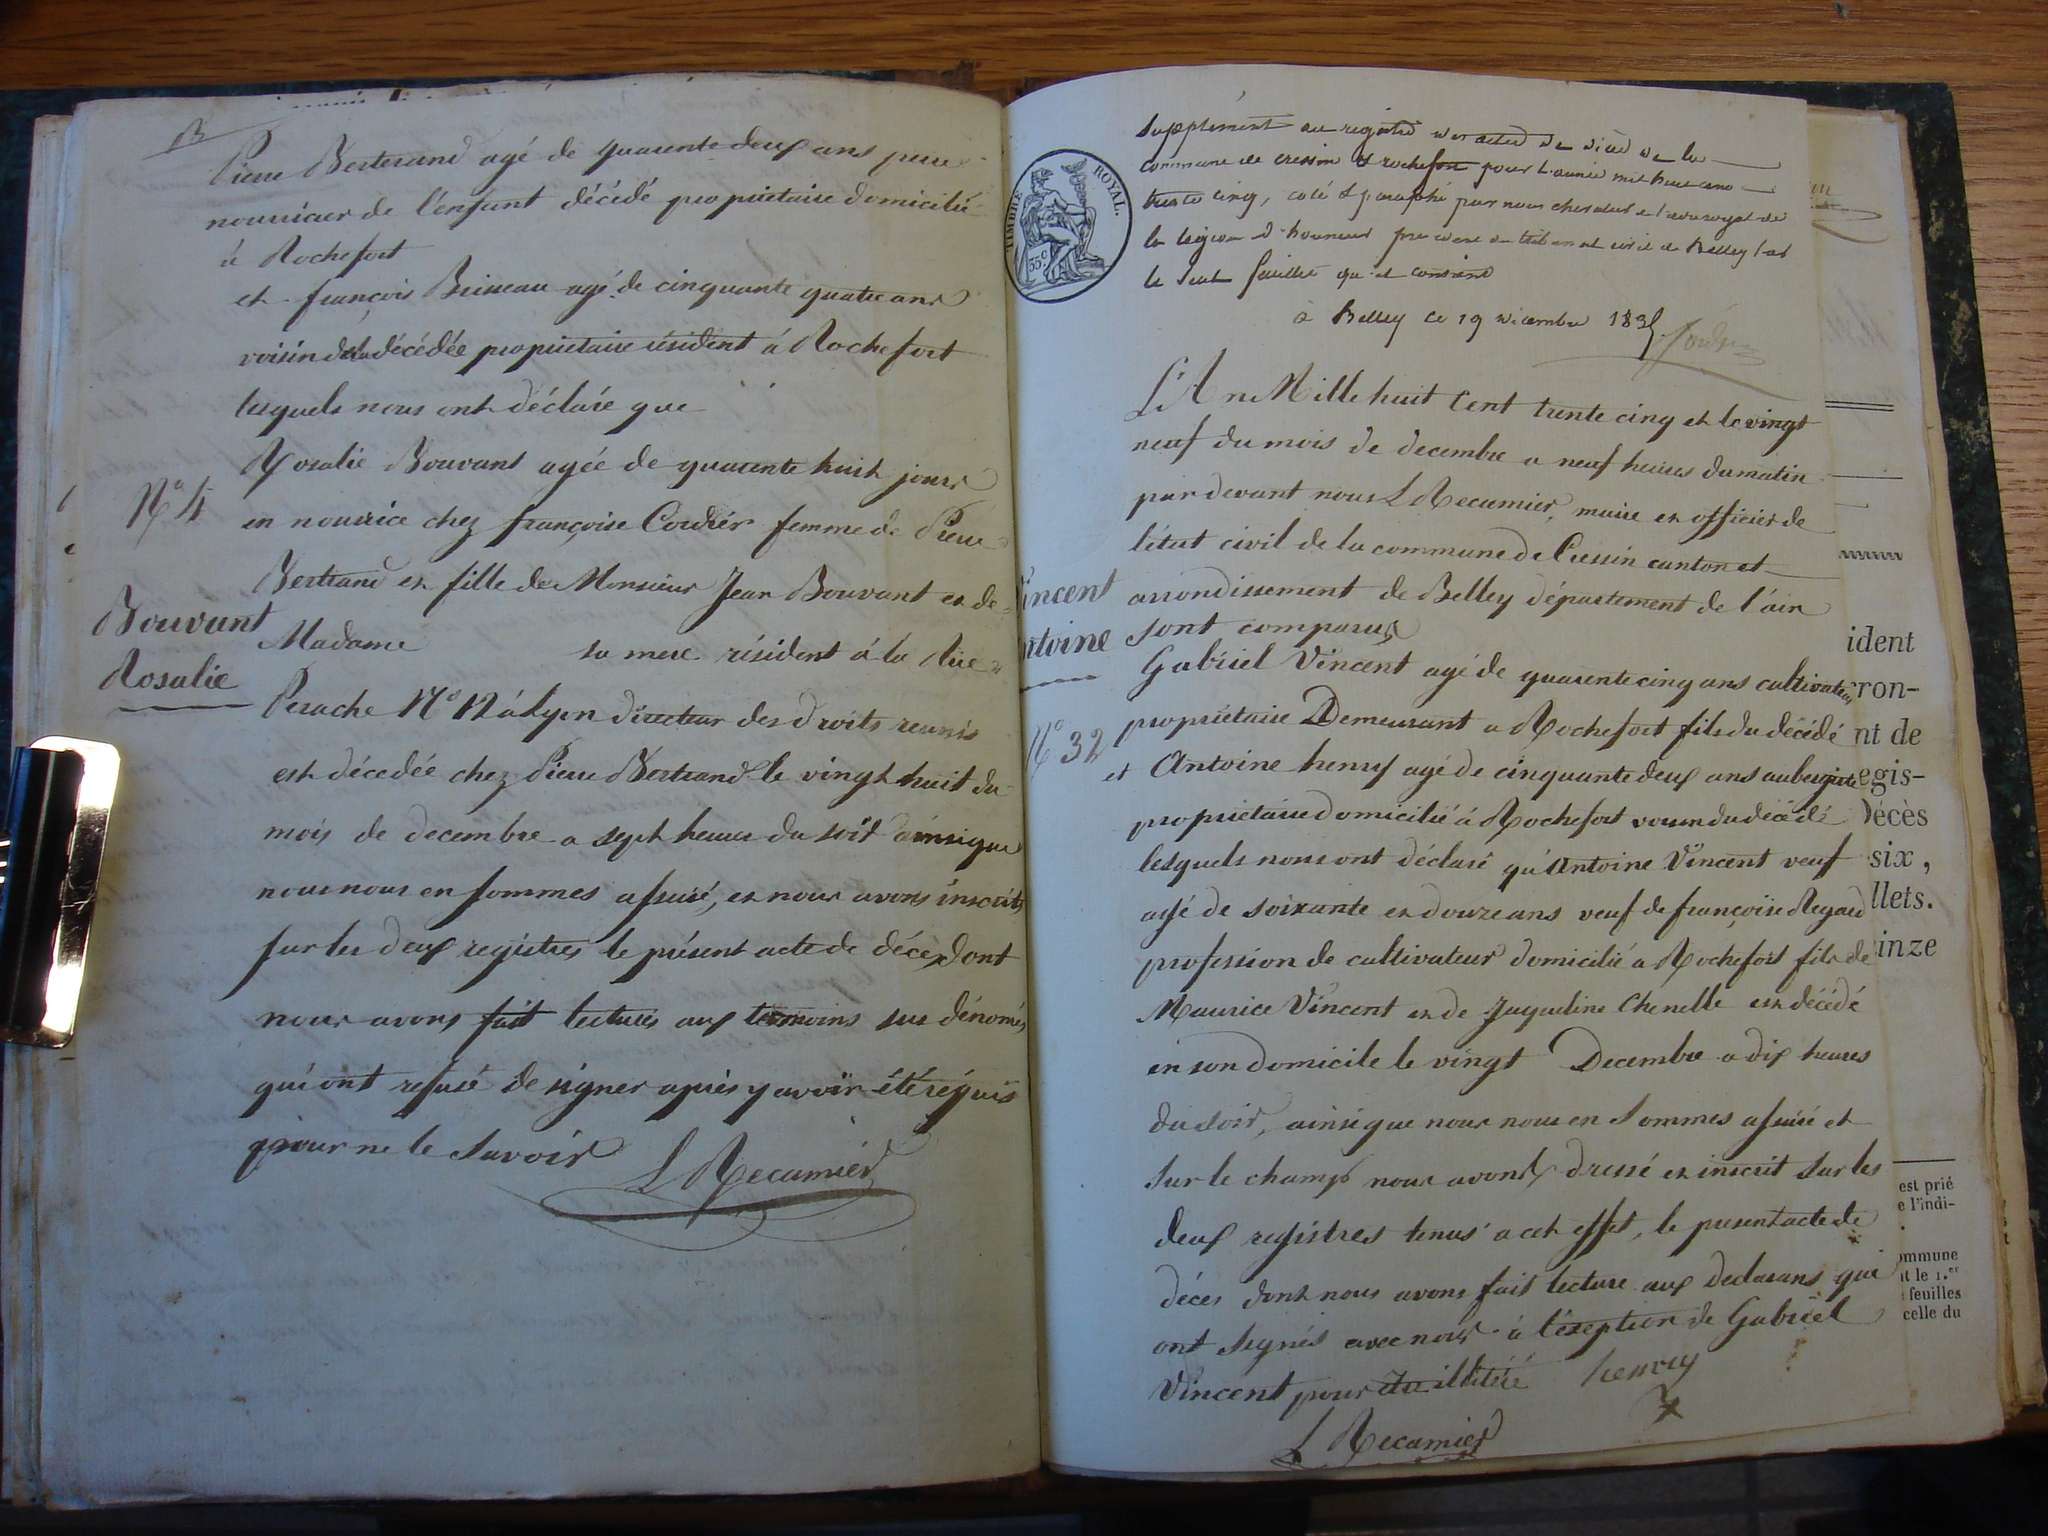 13
Pierre Bertrand agé de quarente deux ans pere
nourricier de l'enfant décédé propriétaire domicilié
à Rochefort
et françois Brisseau agé de cinquante quatre ans
voisin dela décédée proprietaire résident à Rochefort
lesquels nous ont déclaré que
Rosalie Bouvant agée de quarente huit jours
N° 4
en nourrice chez françoise Cordier femme de Pierre
Bertrand et fille de Monsieur Jean Bouvant et de
Bouvant
Rosalie
Madame sa mere résident à la Rüe
Perache N° 12 à Lyon directeur des droits reunis
est décedée chez Pierre Bertrand le vingt huit du
mois de decembre a sept heures du soir ainsi que
nous nous en sommes assuré, et nous avons inscrits
sur les deux registres le présent acte de décès dont
nous avons fait lectures aux temoins sus dénomés
qui ont refusé de signer après y avoir été réquis
pour ne le savoir
L Recamier
Supplément au registre des actes de décès de la
commune de cressin et rochefort pour l'année mil huit cent
trente cinq, coté et paraphé par nous chevalier de l'ordre royal de
la légion d'honneur président du tribunal civil de Belley
le seul feuillet qu'il contient
à Belley ce 19 décembre 1835
TIMBRE ROYAL.
35c
L'An Mille huit Cent trente cinq et le vingt
neuf du mois de decembre a neuf heures du matin
par devant nous L Recamier, maire et officier de
l'état civil de la commune de Cressin canton et
arrondissement de Belley département de l'ain
Vincent
ntoine
sont comparus
Gabriel Vincent agé de quarente cinq ans cultivateur
propriétaire Demeurant a Rochefort fils du décédé
N° 32
et Antoine henry agé de cinquante deux ans aubergiste
propriétaire domicilié à Rochefort voisin du décédé
lesquels nous ont déclaré qu'Antoine Vincent veuf
agé de soixante et douze ans veuf de françoise Regard
profession de cultivateur domicilié a Rochefort fils de
Maurice Vincent et de Jaqueline Chenelle est décédé
en son domicile le vingt Decembre a dix heures
du soir, ainsi que nous nous en sommes assuré et
sur le champ nous avons dressé et inscrit sur les
deux registres tenus a cet effet, le present acte de
décès dont nous avons fait lecture aux declarans qui
ont signés avec nous à l'exeption de Gabriel
Vincent pour illitéré henry
L Recamier
ident
ron-
nt de
egis-
Décès
six,
llets.
inze
est prié
e l'indi-
ommune
nt le 1.er
feuilles
celle du